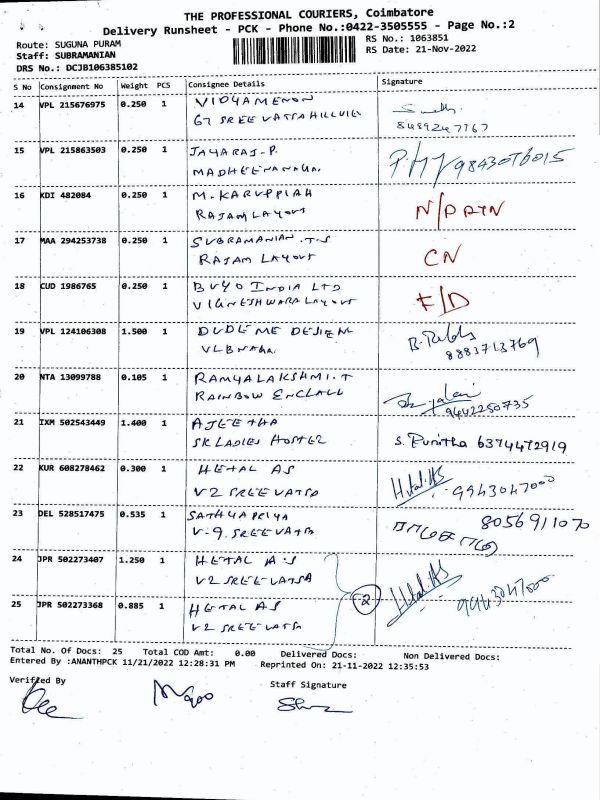 THE PROFESSIONAL COURIERS, Coimbatore
Delivery Runsheet - PCK - Phone No.:0422-3505555 - Page No.:2
Route: SUGUNA PURAM
RS No.: 1063851
Staff: SUBRAMANIAN
RS Date: 21-Nov-2022
DRS No.: DCJB106385102
S No Consignment No Weight PCS Consignee Details Signature
14 VPL 215676975 0.250 1 VIDYAMENON
67 SREE VATSA HILLVIEW
8489247767
15 VPL 215863503 0.250 1 JAYARAJ-P. 9843076015
MADHEENANAGAR
16 KDI 482084 0.250 1 M.KARUPPIAH
RAJAM LAYOUT
17 MAA 294253738 0.250 1 SUBRAMANIAN.T.S CN
RAJAM LAYOUT
18 CUD 1986765 0.250 1 BUYO INDIA LTD F/D
VIGNESHWARA LAYOUT
19 VPL 124106308 1.500 1
VLBNAGAR 8883713769
20 NTA 13099788 0.105 1 RAMYALAKSHMI.T
RAINBOW ENCLAVE 9442250735
21 IXM 502543449 1.400 1 AJEETHA S. Punitha 6374472919
SK LADIES HOSTEL
22 KUR 608278462 0.300 1 HETAL AS Hetal.AS 9943047000
V2 SREEVATSA
23 DEL 528517475 0.535 1 SATHYAPRIYA 8056911070
V-9. SREEVATSA
24 JPR 502273407 1.250 1 HETAL A S
V2 SREEVATSA
2 Hetal.AS 9943047000
25 JPR 502273368 0.885 1 HETAL AS
V2 SREEVATSA
Total No. Of Docs: 25 Total COD Amt: 0.00 Delivered Docs: Non Delivered Docs:
Entered By :ANANTHPCK 11/21/2022 12:28:31 PM Reprinted On: 21-11-2022 12:35:53
Verified By
Staff Signature